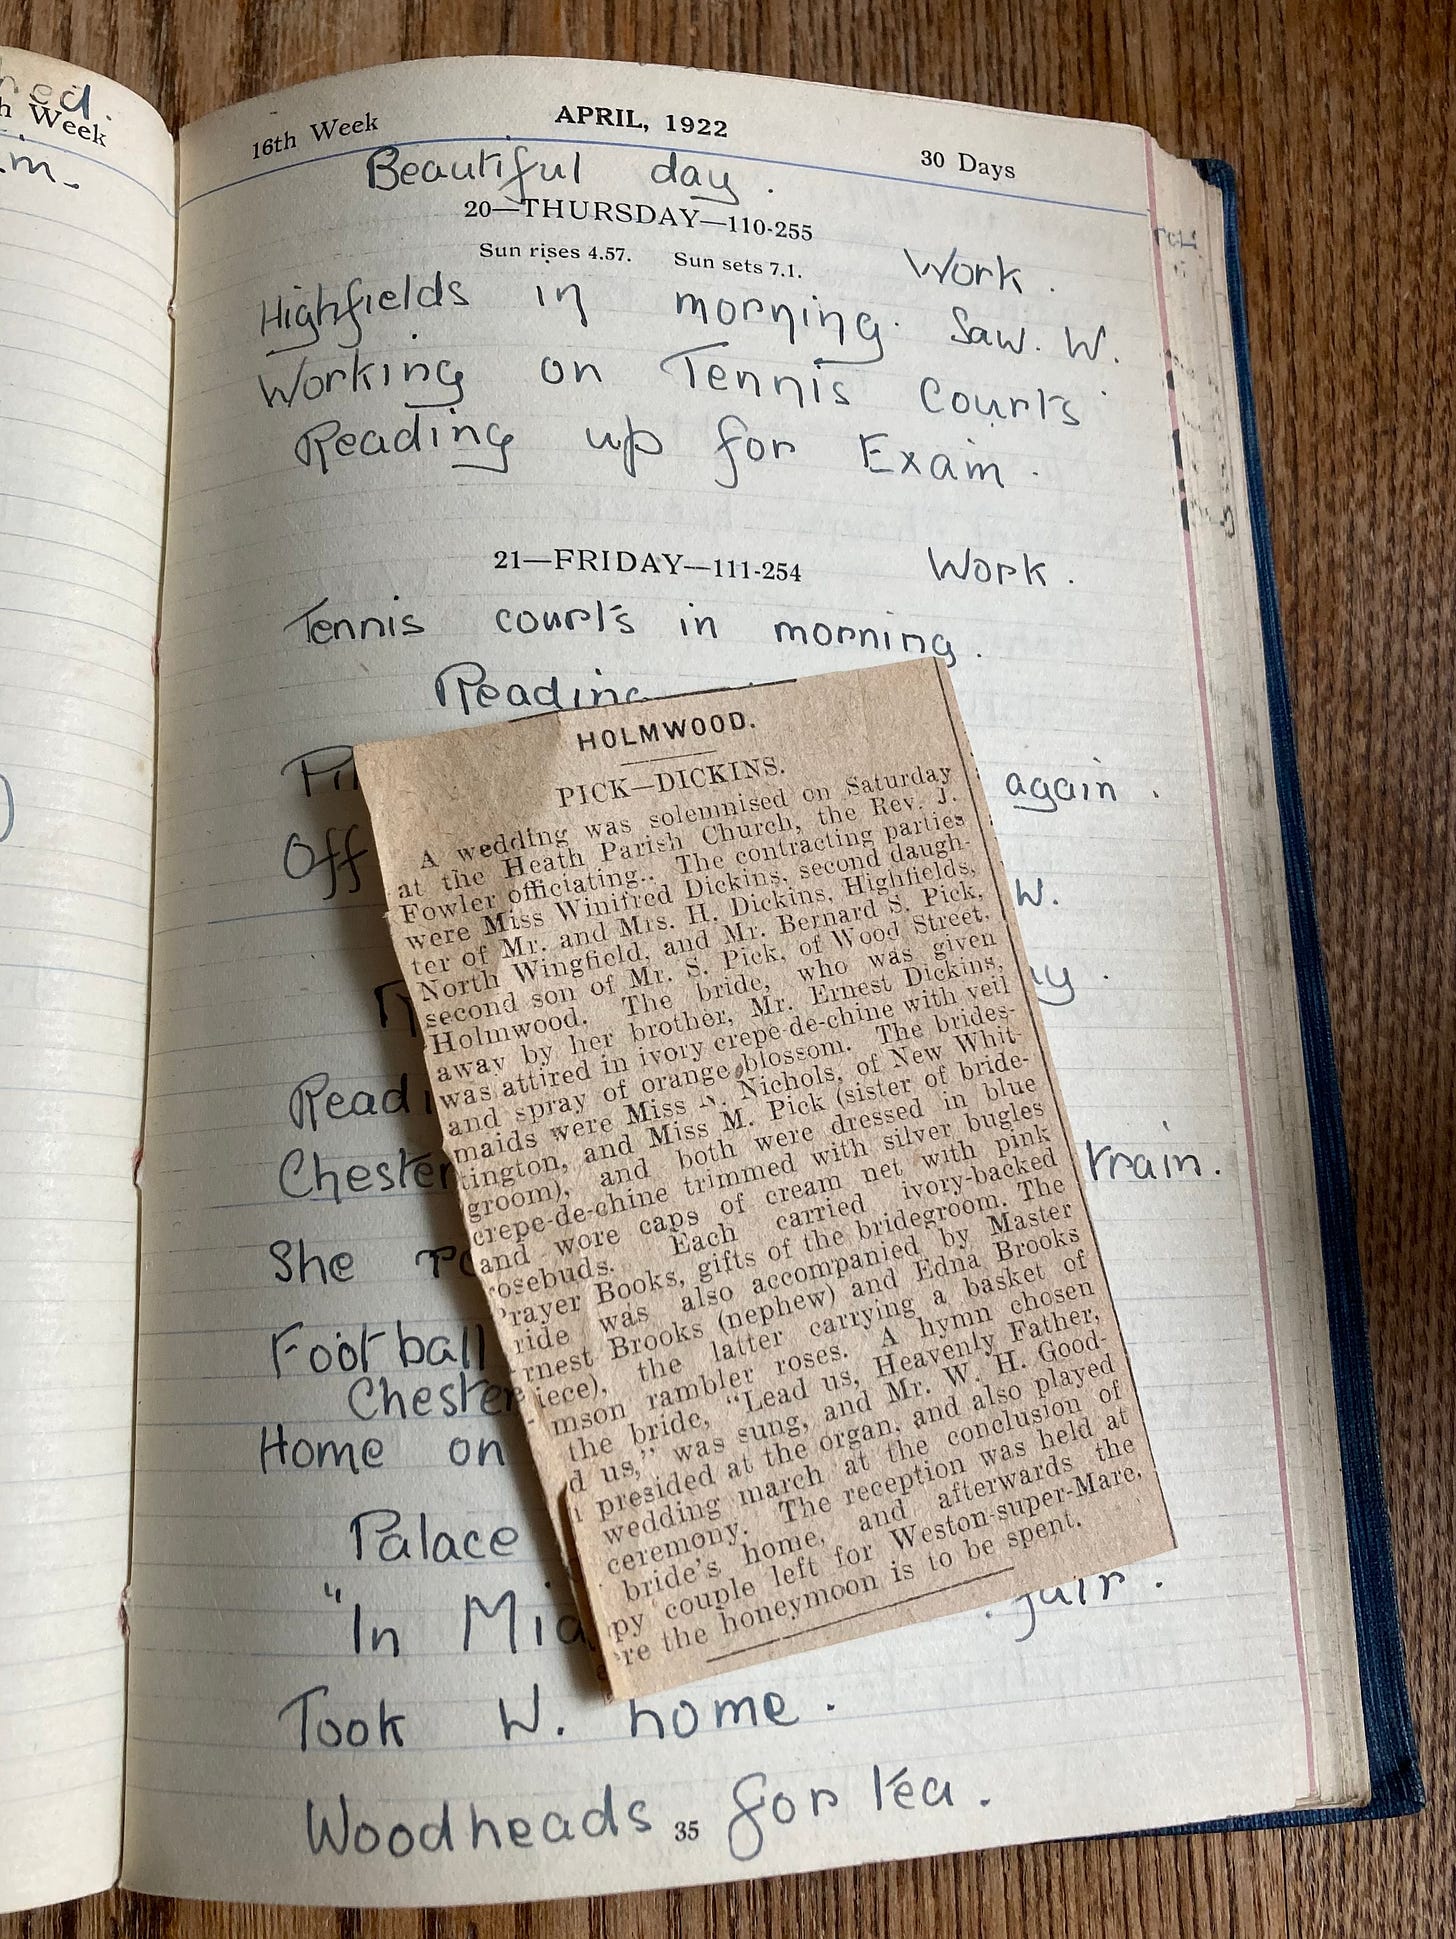 hed.
h Week
m.
16th Week APRIL, 1922 30 Days
Beautiful day.
20—THURSDAY—110-255
Sun rises 4.57. Sun sets 7.1. Work.
Highfields in morning. Saw. W.
Working on Tennis Courts
Reading up for Exam.
21—FRIDAY—111-254 Work.
Tennis courts in morning.
Reading
again.
Off
W.
Read
Chester train.
She
Football
Chester
Home on
Palace
"In Mid fair.
Took W. home.
Woodheads for tea.
35
HOLMWOOD.
PICK—DICKINS.
A wedding was solemnised on Saturday
at the Heath Parish Church, the Rev. J.
Fowler officiating.. The contracting parties
were Miss Winifred Dickins, second daugh-
ter of Mr. and Mrs. H. Dickins, Highfields,
North Wingfield, and Mr. Bernard S. Pick,
second son of Mr. S. Pick, of Wood Street,
Holmwood. The bride, who was given
away by her brother, Mr. Ernest Dickins,
was attired in ivory crepe-de-chine with veil
and spray of orange blossom. The brides-
maids were Miss N. Nichols, of New Whit-
tington, and Miss M. Pick (sister of bride-
groom), and both were dressed in blue
crepe-de-chine trimmed with silver bugles
and wore caps of cream net with pink
rosebuds. Each carried ivory-backed
Prayer Books, gifts of the bridegroom. The
ride was also accompanied by Master
rnest Brooks (nephew) and Edna Brooks
iece), the latter carrying a basket of
mson rambler roses. A hymn chosen
the bride, "Lead us, Heavenly Father,
d us," was sung, and Mr. W. H. Good-
presided at the organ, and also played
wedding march at the conclusion of
ceremony. The reception was held at
bride's home, and afterwards the
py couple left for Weston-super-Mare,
re the honeymoon is to be spent.